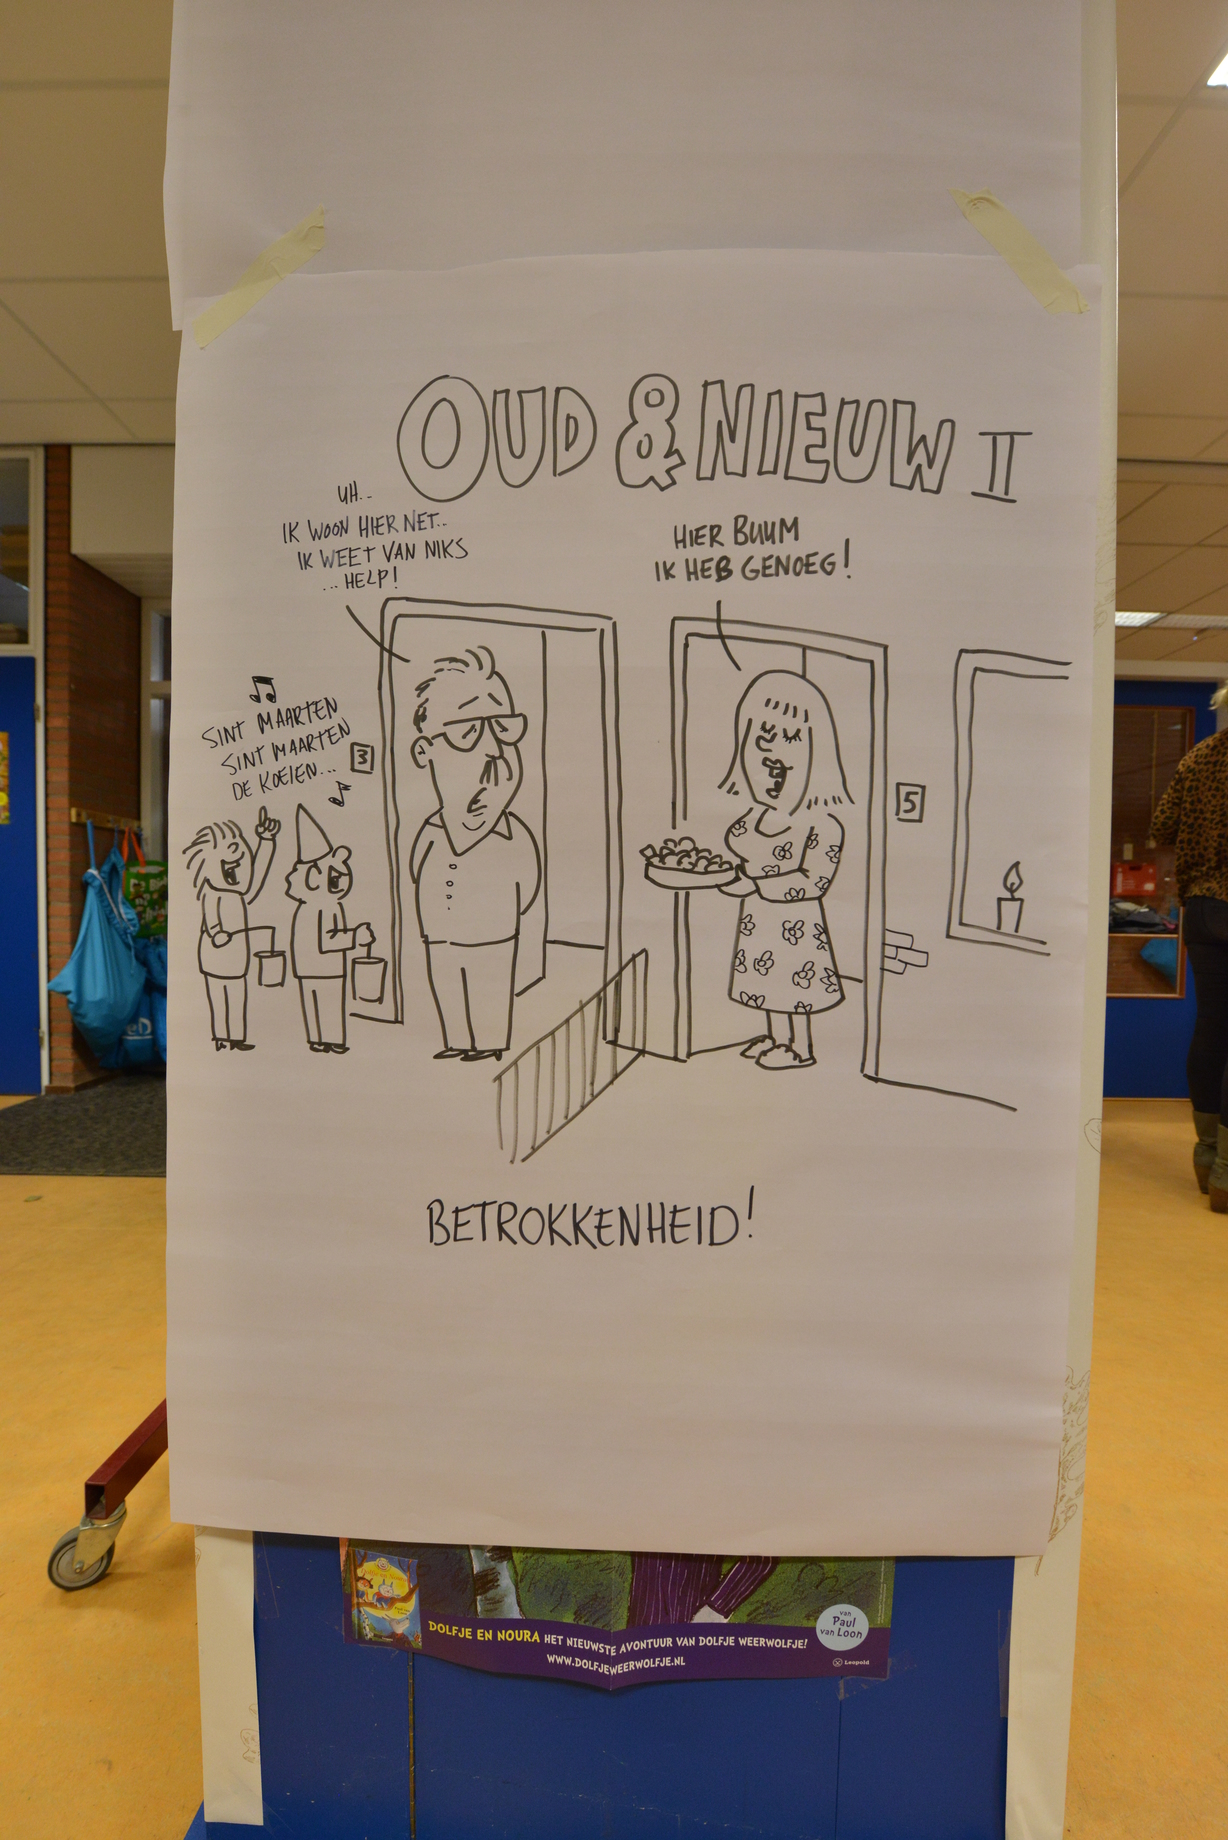 OUD & NIEUW II
UH..
IK WOON HIER NET..
IK WEET VAN NIKS
... HELP!
HIER BUUM
IK HEB GENOEG!
SINT MAARTEN
SINT MAARTEN
DE KOEIEN...
3
5
BETROKKENHEID!
van
Paul
van Loon
DOLFJE EN NOURA HET NIEUWSTE AVONTUUR VAN DOLFJE WEERWOLFJE!
WWW.DOLFJEWEERWOLFJE.NL
Leopold